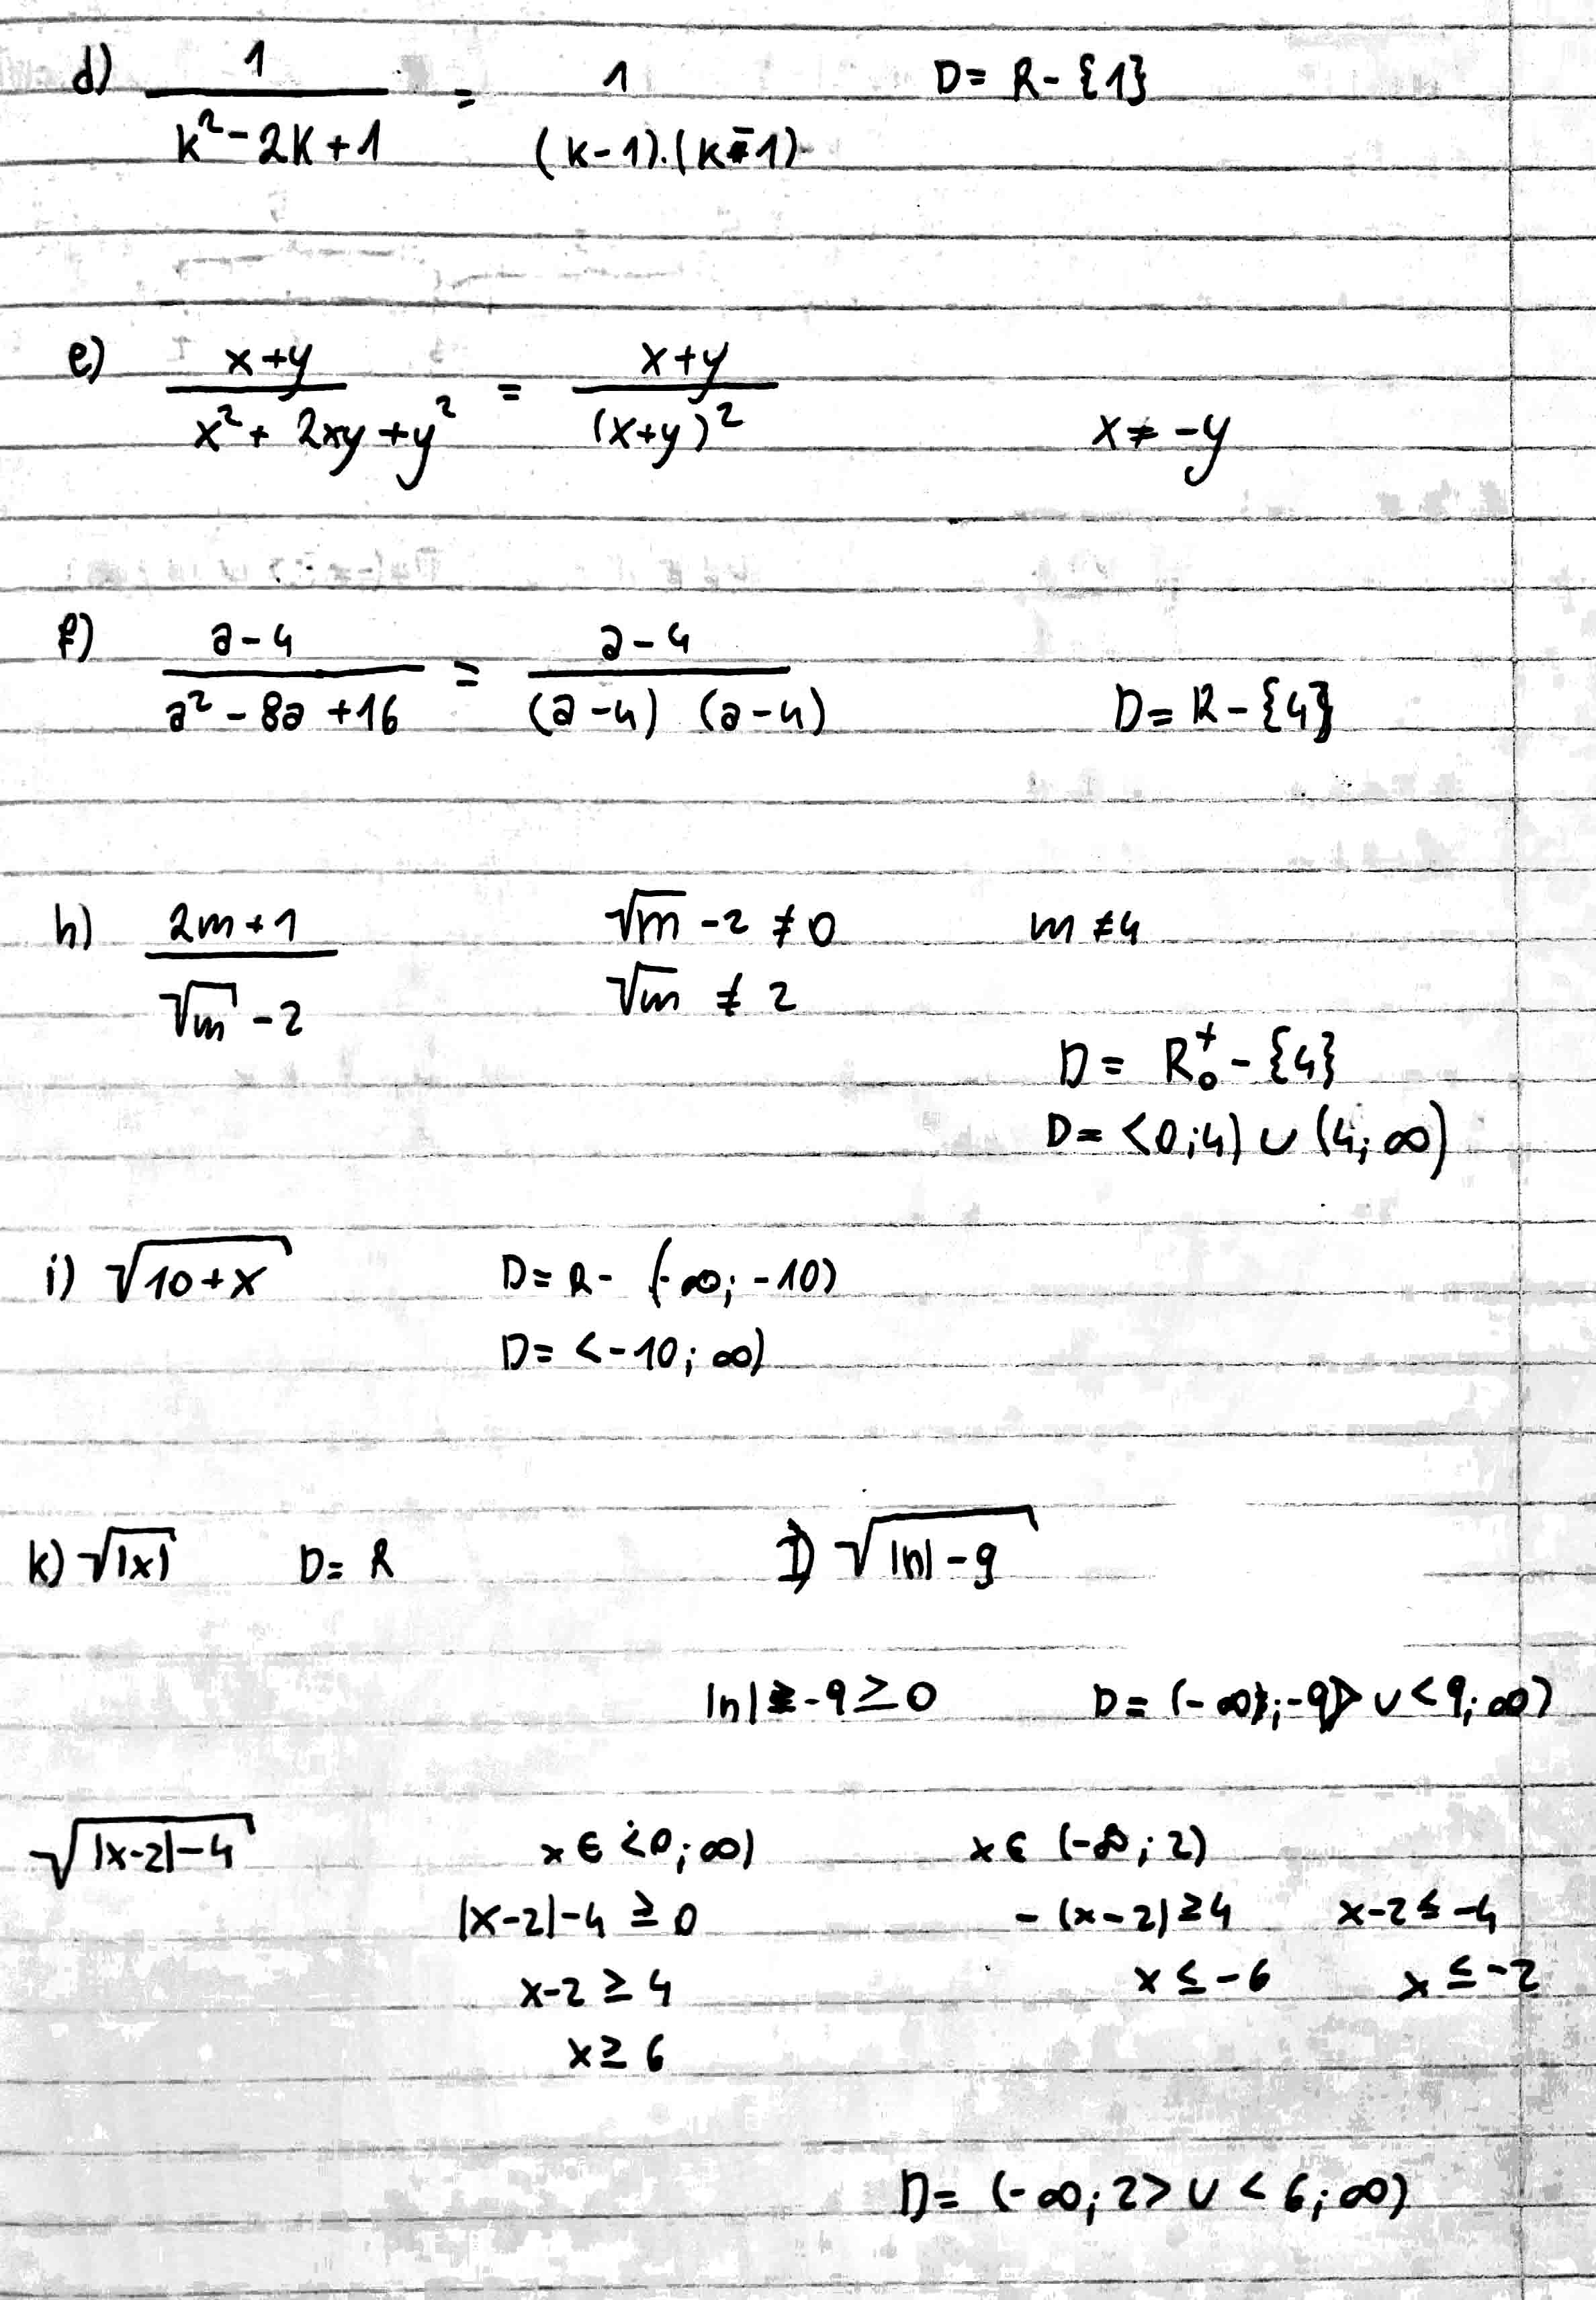 d) 1 / (k² - 2k + 1) = 1 / ((k-1).(k-1)) D = R - {1}
e) (x+y) / (x² + 2xy + y²) = (x+y) / (x+y)² x ≠ -y
f) (a-4) / (a² - 8a + 16) = (a-4) / ((a-4) (a-4)) D = R - {4}
h) (2m+1) / (√m - 2) √m - 2 ≠ 0 m ≠ 4
√m ≠ 2
D = R₀⁺ - {4}
D = <0;4) ∪ (4;∞)
i) √(10+x) D = R - (-∞; -10)
D = <-10; ∞)
k) √|x| D = R l) √(|n| - 9)
|n| - 9 ≥ 0 D = (-∞; -9> ∪ <9; ∞)
√(|x-2| - 4) x ∈ <0; ∞) x ∈ (-∞; 2)
|x-2| - 4 ≥ 0 - (x-2) ≥ 4 x-2 ≤ -4
x-2 ≥ 4 x ≤ -6 x ≤ -2
x ≥ 6
D = (-∞; 2> ∪ <6; ∞)